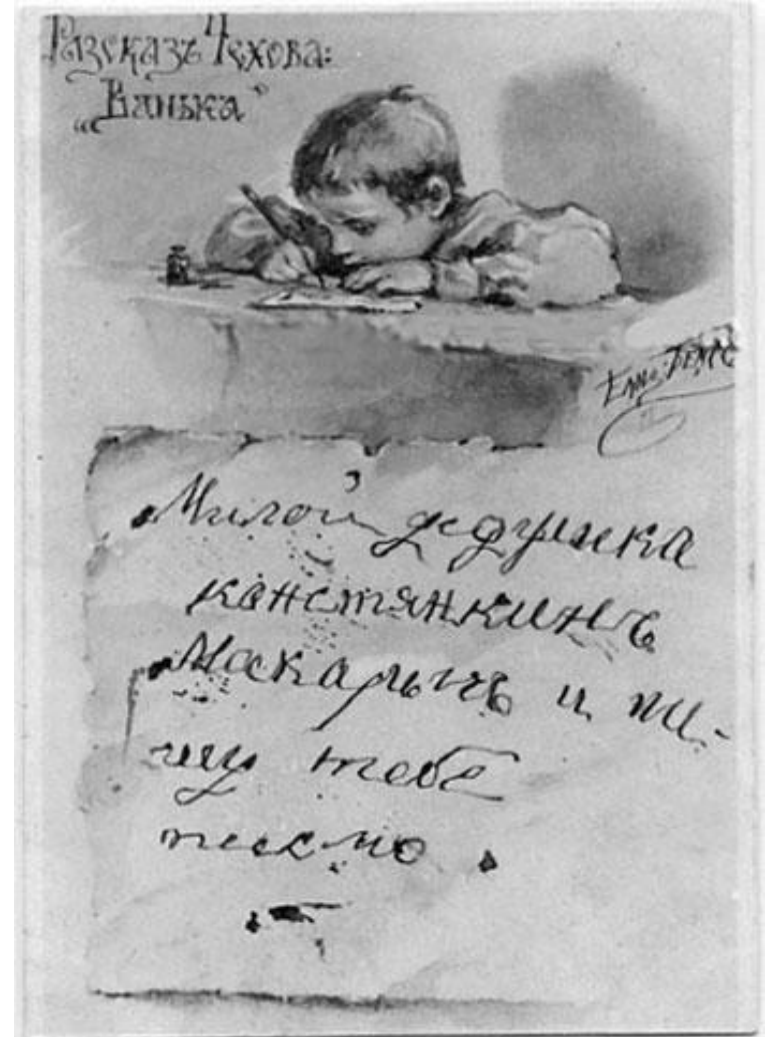 Разсказъ Чехова:
„Ванька"
Елис. Бемъ
Милой дедушка
констянкинъ
Макарычъ и пи-
шу тебе
писмо.